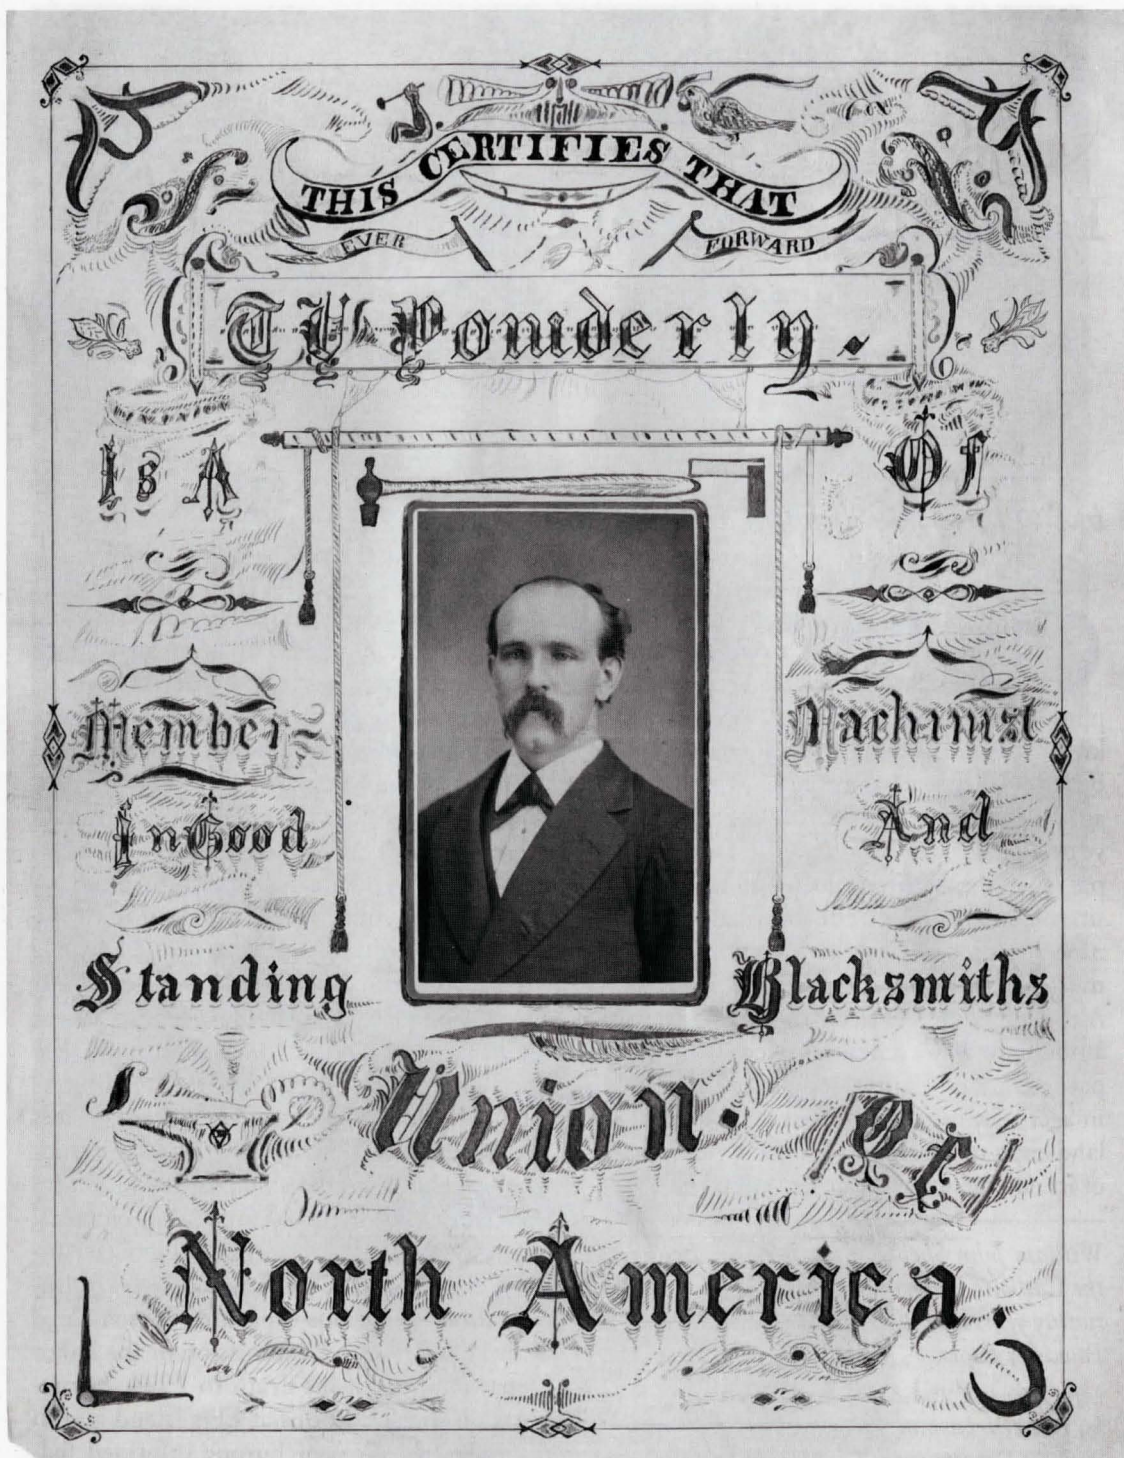 THIS CERTIFIES THAT
EVER FORWARD
T V Powderly.
Is A
Member
In Good
Standing
Of
Machinist
And
Blacksmiths
Union. Of
North America.